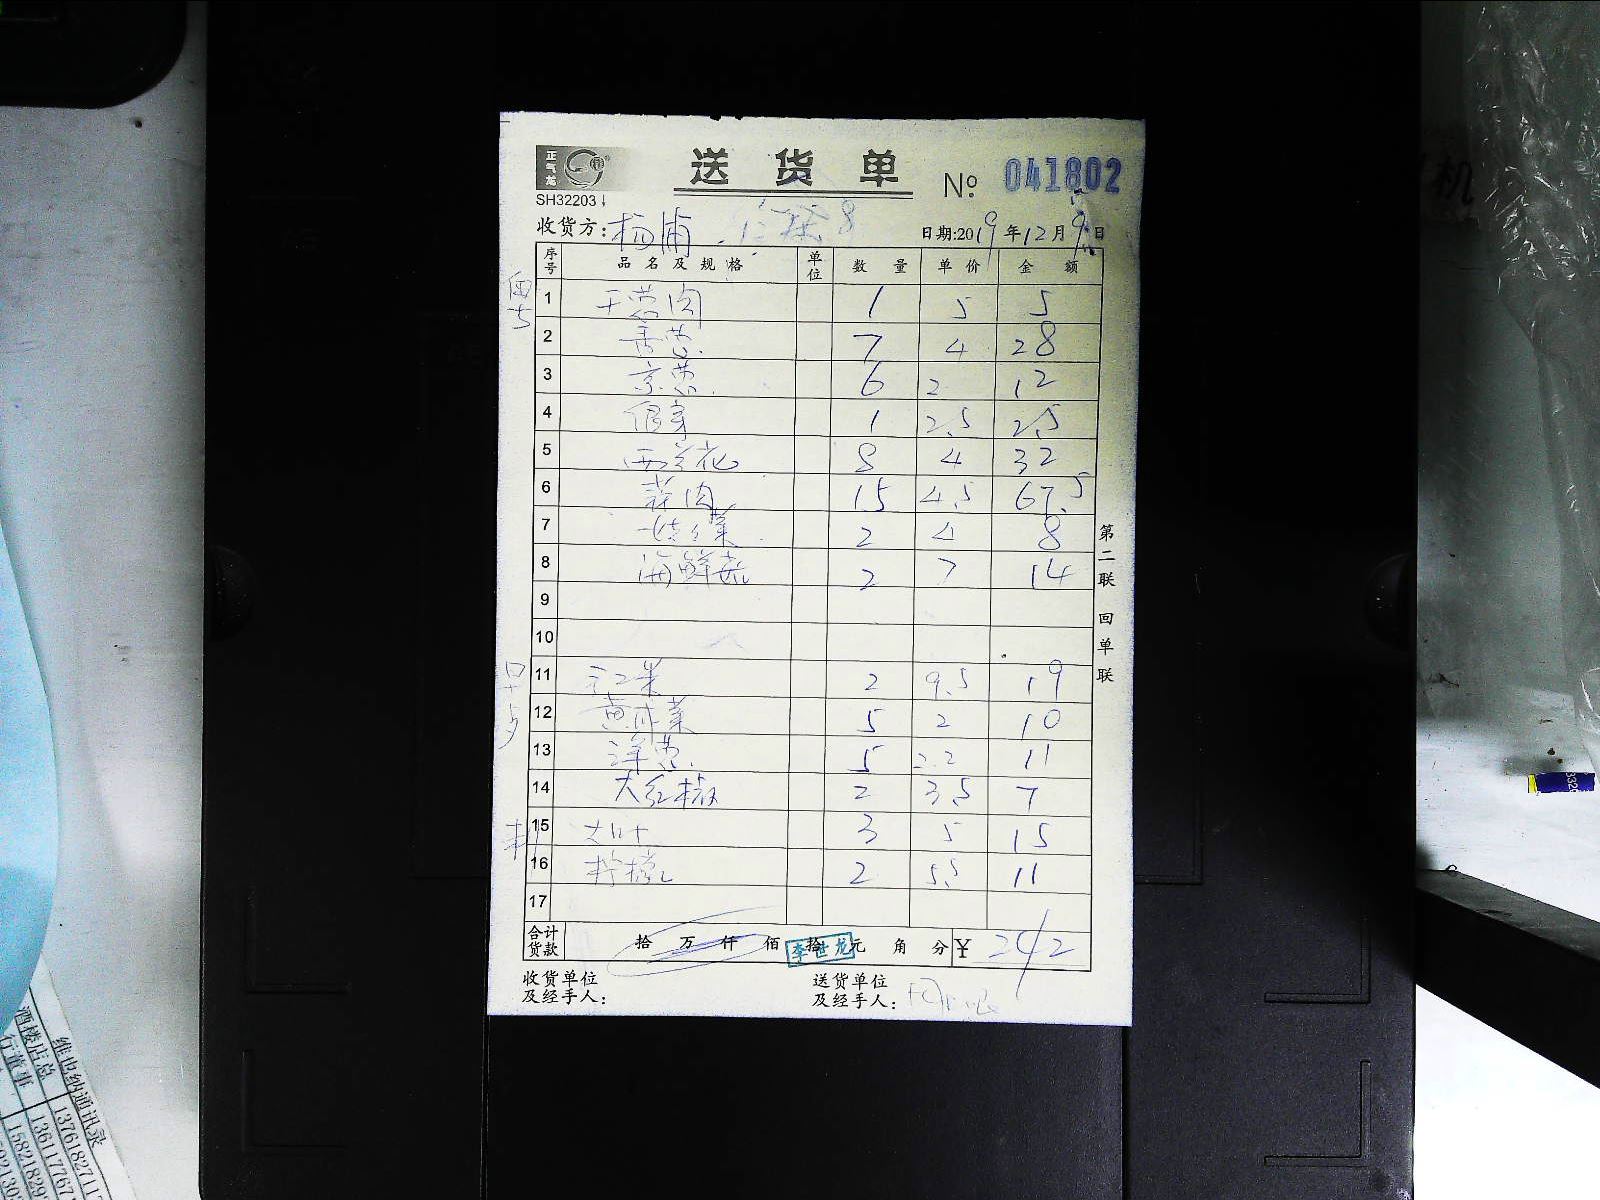 正气龙
送货单
No. 041802
SH32203
收货方: 杨浦
日期:2019年12月9日
序号 品名及规格 单位 数量 单价 金额
1 干葱肉 1 5 5
2 香葱 7 4 28
3 京葱 6 2 12
4 1 2.5 2.5
5 西兰花 8 4 32
6 蒜肉 15 4.5 67.5
7 娃娃菜 2 4 8
8 海鲜菇 2 7 14
9
10
11 2 9.5 19
12 黄才菜 5 2 10
13 洋葱 5 2.2 11
14 大红椒 2 3.5 7
15 大叶 3 5 15
16 柠檬 2 5.5 11
17
合计货款 拾 万 仟 佰 拾 元 角 分 ¥ 242
李世龙
收货单位及经手人:
送货单位及经手人:
第二联 回单联
机
维也纳通讯录
酒楼店总 1376182711
行董事 136117767
158218292